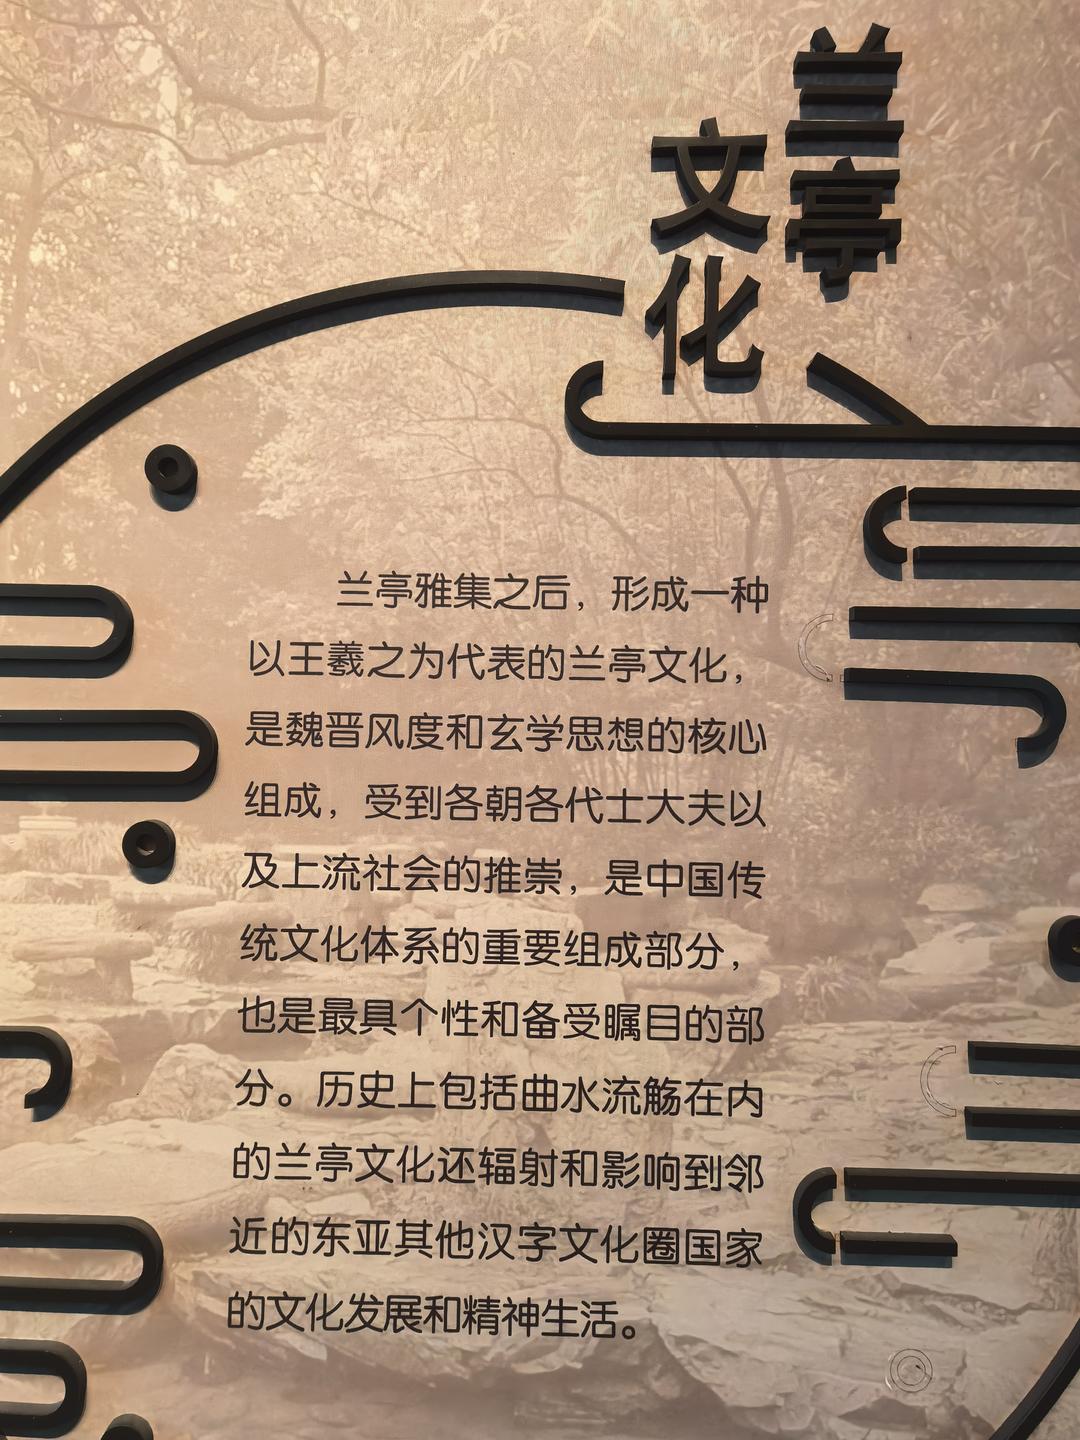 兰亭
文化
兰亭雅集之后，形成一种
以王羲之为代表的兰亭文化，
是魏晋风度和玄学思想的核心
组成，受到各朝各代士大夫以
及上流社会的推崇，是中国传
统文化体系的重要组成部分，
也是最具个性和备受瞩目的部
分。历史上包括曲水流觞在内
的兰亭文化还辐射和影响到邻
近的东亚其他汉字文化圈国家
的文化发展和精神生活。